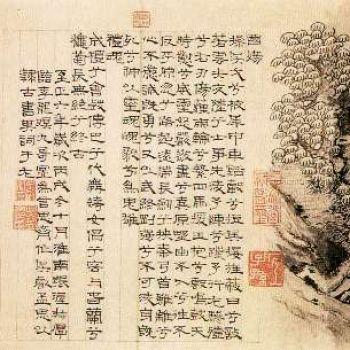 國殤
操吳戈兮被犀甲車錯轂兮短兵接旌蔽日兮敵
若雲矢交墜兮士爭先凌余陣兮躐余行左驂殪
兮右刃傷霾兩輪兮縶四馬援玉枹兮擊鳴鼓天
時懟兮威靈怒嚴殺盡兮棄原壄出不入兮往不
反平原忽兮路超遠帶長劍兮挾秦弓首雖離兮
心不懲誠既勇兮又以武終剛強兮不可凌身既
死兮神以靈魂魄毅兮為鬼雄
禮魂
成禮兮會鼓傳芭兮代舞姱女倡兮容與春蘭兮
秋菊長無絕兮終古
至正六年歲次丙戌冬十月淮南張渥叔厚
臨李龍眠九歌圖為言思齊作吳叡孟思以
隸古書其詞于左